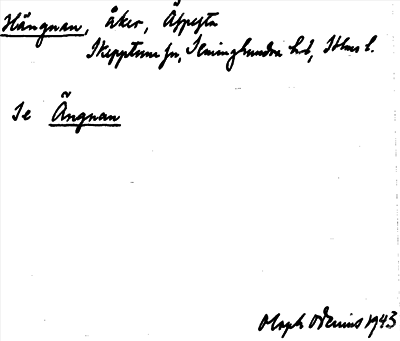 Hängnan, åker, Äspesta
Skepptuna sn, Seminghundra hd, Sthms l.
Se Ängnan
Oloph Odenius 1943